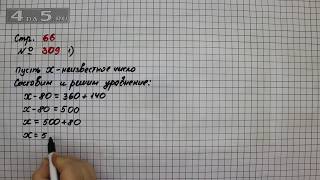 4 на 5.ru
Стр. 66
№ 309 1)
Пусть x - неизвестное число
Составим и решим уравнение:
x - 80 = 360 + 140
x - 80 = 500
x = 500 + 80
x = 5